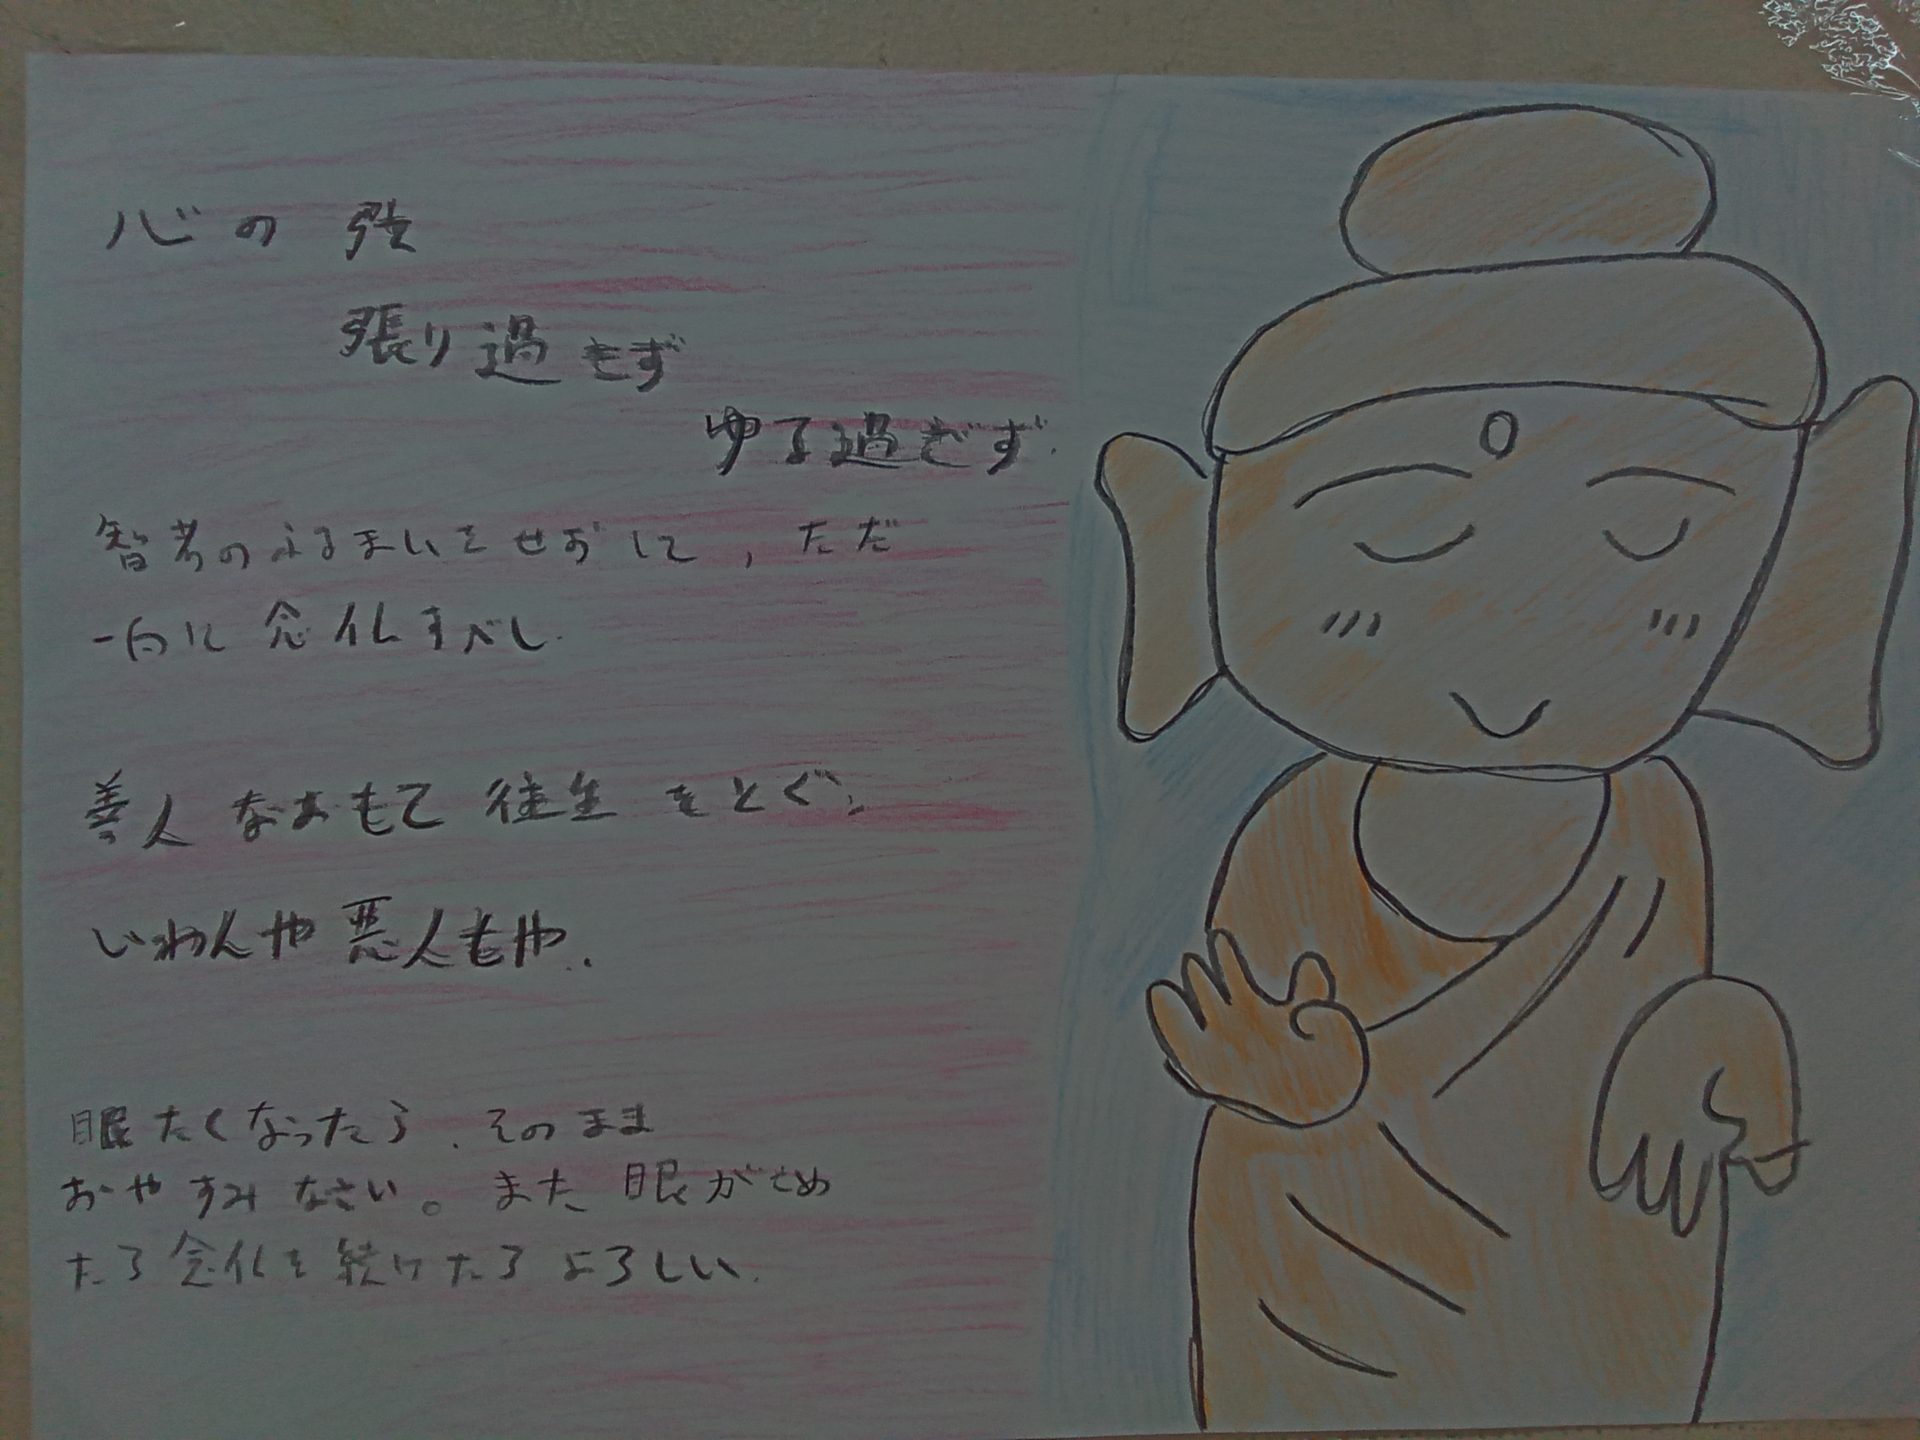 心の 弦
張り過ぎず
ゆる過ぎず.
智者のふるまいをせずして、ただ
一向に 念仏すべし.
善人 なおもて 往生 をとぐ、
いわんや 悪人をや..
眠たくなったら、そのまま
おやすみ なさい。また 眼がさめ
たら 念仏を 続けたら よろしい.